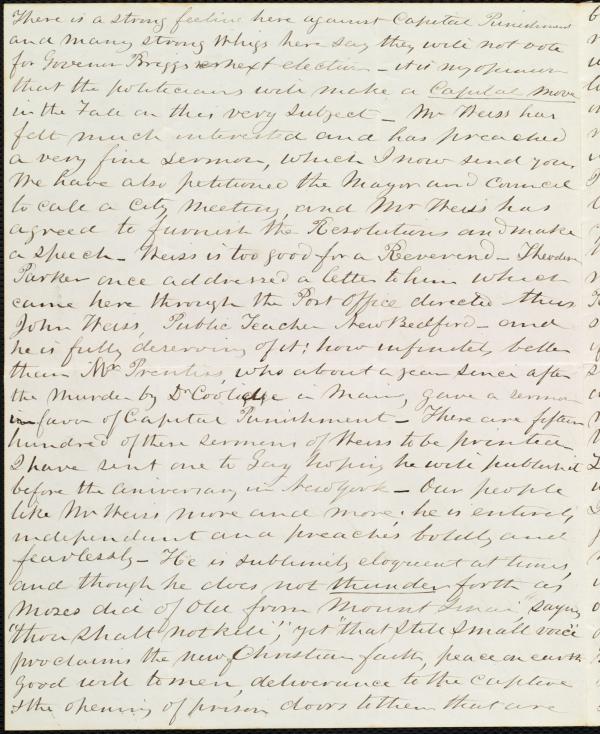 There is a strong feeling here against Capital Punishment
and many strong Whigs here say they will not vote
for Govenor Briggs next election – it is my opinion
that the politicians will make a Capital move
in the Fall on this very subject – Mr Weiss has
felt much interested and has preached
a very fine sermon, which I now send you.
We have also petitioned the Mayor and Council
to call a City Meeting, and Mr Weiss has
agreed to furnish the Resolutions and make
a speech – Weiss is too good for a Reverend – Theodore
Parker once addressed a letter to him which
came here through the Post Office directed thus
John Weiss, Public Teacher New Bedford – and
he is fully deserving of it! how infinitely better
than Mr Prentiss, who about a year since after
the murder by Dr Coolidge in Main, gave a sermon
in favor of Capital Punishment – There are fifteen
hundred of these sermons of Weiss to be printed
I have sent one to Gay hoping he will publish it
before the aniversary in New York – Our people
like Mr Weiss more and more; he is entirely
independent and preaches boldly and
fearlessly – He is sublimely eloquent at times,
and though he does not thunder forth as
Mozes did of Old from Mount Sinai, "saying
"thou shalt not kill", yet "that still small voice"
proclaims the new Christian faith, peace on earth
good will to men, deliverance to the captive
& the opening of prison doors to them that are